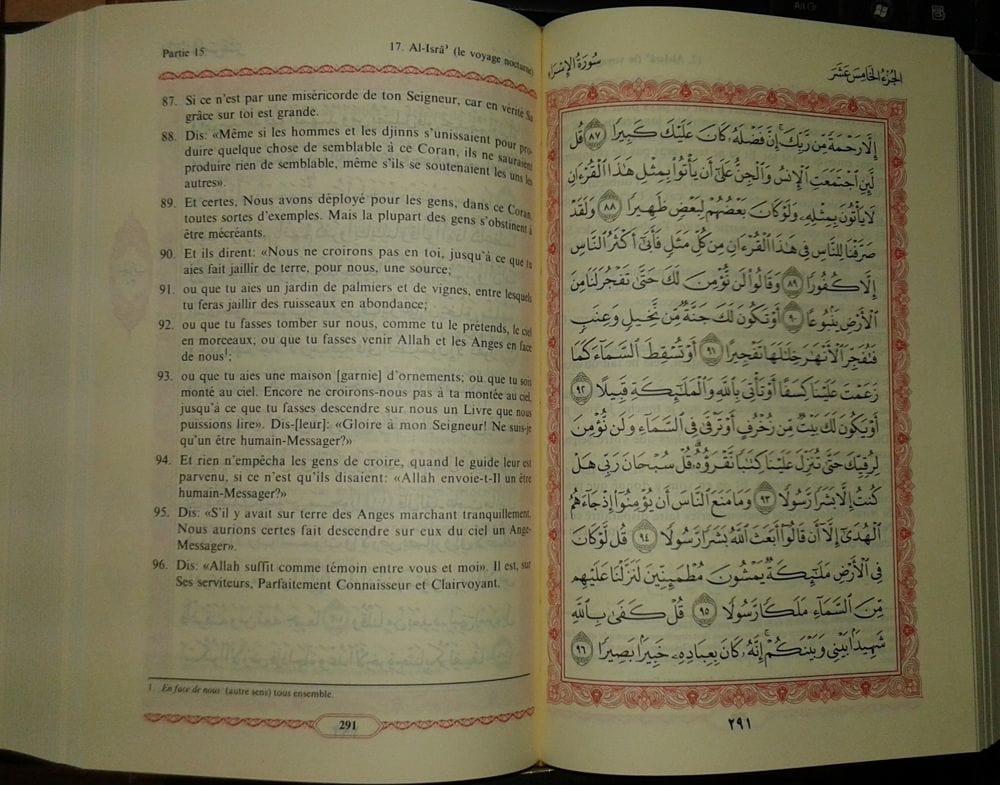 Partie 15
17. Al-Isrâ’ (le voyage nocturne)
87. Si ce n'est par une miséricorde de ton Seigneur, car en vérité Sa
grâce sur toi est grande.
88. Dis: «Même si les hommes et les djinns s'unissaient pour pro-
duire quelque chose de semblable à ce Coran, ils ne sauraient
produire rien de semblable, même s'ils se soutenaient les uns les
autres».
89. Et certes, Nous avons déployé pour les gens, dans ce Coran,
toutes sortes d'exemples. Mais la plupart des gens s'obstinent à
être mécréants.
90. Et ils dirent: «Nous ne croirons pas en toi, jusqu'à ce que tu
aies fait jaillir de terre, pour nous, une source;
91. ou que tu aies un jardin de palmiers et de vignes, entre lesquels
tu feras jaillir des ruisseaux en abondance;
92. ou que tu fasses tomber sur nous, comme tu le prétends, le ciel
en morceaux; ou que tu fasses venir Allah et les Anges en face
de nous¹;
93. ou que tu aies une maison [garnie] d'ornements; ou que tu sois
monté au ciel. Encore ne croirons-nous pas à ta montée au ciel,
jusqu'à ce que tu fasses descendre sur nous un Livre que nous
puissions lire». Dis-[leur]: «Gloire à mon Seigneur! Ne suis-je
qu'un être humain-Messager?»
94. Et rien n'empêcha les gens de croire, quand le guide leur est
parvenu, si ce n'est qu'ils disaient: «Allah envoie-t-Il un être
humain-Messager?»
95. Dis: «S'il y avait sur terre des Anges marchant tranquillement,
Nous aurions certes fait descendre sur eux du ciel un Ange-
Messager».
96. Dis: «Allah suffit comme témoin entre vous et moi». Il est, sur
Ses serviteurs, Parfaitement Connaisseur et Clairvoyant.
1. En face de nous (autre sens) tous ensemble.
291
سُورَةُ الإِسْرَاء
الجُزْءُ الخَامِسَ عَشَرَ
إِلَّا رَحْمَةً مِّن رَّبِّكَ ۚ إِنَّ فَضْلَهُۥ كَانَ عَلَيْكَ كَبِيرًا ٨٧ قُل
لَّئِنِ ٱجْتَمَعَتِ ٱلْإِنسُ وَٱلْجِنُّ عَلَىٰٓ أَن يَأْتُوا۟ بِمِثْلِ هَٰذَا ٱلْقُرْءَانِ
لَا يَأْتُونَ بِمِثْلِهِۦ وَلَوْ كَانَ بَعْضُهُمْ لِبَعْضٍ ظَهِيرًا ٨٨ وَلَقَدْ
صَرَّفْنَا لِلنَّاسِ فِى هَٰذَا ٱلْقُرْءَانِ مِن كُلِّ مَثَلٍ فَأَبَىٰٓ أَكْثَرُ ٱلنَّاسِ
إِلَّا كُفُورًا ٨٩ وَقَالُوا۟ لَن نُّؤْمِنَ لَكَ حَتَّىٰ تَفْجُرَ لَنَا مِنَ
ٱلْأَرْضِ يَنۢبُوعًا ٩٠ أَوْ تَكُونَ لَكَ جَنَّةٌ مِّن نَّخِيلٍ وَعِنَبٍ
فَتُفَجِّرَ ٱلْأَنْهَٰرَ خِلَٰلَهَا تَفْجِيرًا ٩١ أَوْ تُسْقِطَ ٱلسَّمَآءَ كَمَا
زَعَمْتَ عَلَيْنَا كِسَفًا أَوْ تَأْتِىَ بِٱللَّهِ وَٱلْمَلَٰٓئِكَةِ قَبِيلًا ٩٢
أَوْ يَكُونَ لَكَ بَيْتٌ مِّن زُخْرُفٍ أَوْ تَرْقَىٰ فِى ٱلسَّمَآءِ وَلَن نُّؤْمِنَ
لِرُقِيِّكَ حَتَّىٰ تُنَزِّلَ عَلَيْنَا كِتَٰبًا نَّقْرَؤُهُۥ ۗ قُلْ سُبْحَانَ رَبِّى هَلْ
كُنتُ إِلَّا بَشَرًا رَّسُولًا ٩٣ وَمَا مَنَعَ ٱلنَّاسَ أَن يُؤْمِنُوٓا۟ إِذْ جَآءَهُمُ
ٱلْهُدَىٰٓ إِلَّآ أَن قَالُوٓا۟ أَبَعَثَ ٱللَّهُ بَشَرًا رَّسُولًا ٩٤ قُل لَّوْ كَانَ
فِى ٱلْأَرْضِ مَلَٰٓئِكَةٌ يَمْشُونَ مُطْمَئِنِّينَ لَنَزَّلْنَا عَلَيْهِم
مِّنَ ٱلسَّمَآءِ مَلَكًا رَّسُولًا ٩٥ قُلْ كَفَىٰ بِٱللَّهِ
شَهِيدًۢا بَيْنِى وَبَيْنَكُمْ ۚ إِنَّهُۥ كَانَ بِعِبَادِهِۦ خَبِيرًۢا بَصِيرًا ٩٦
٢٩١